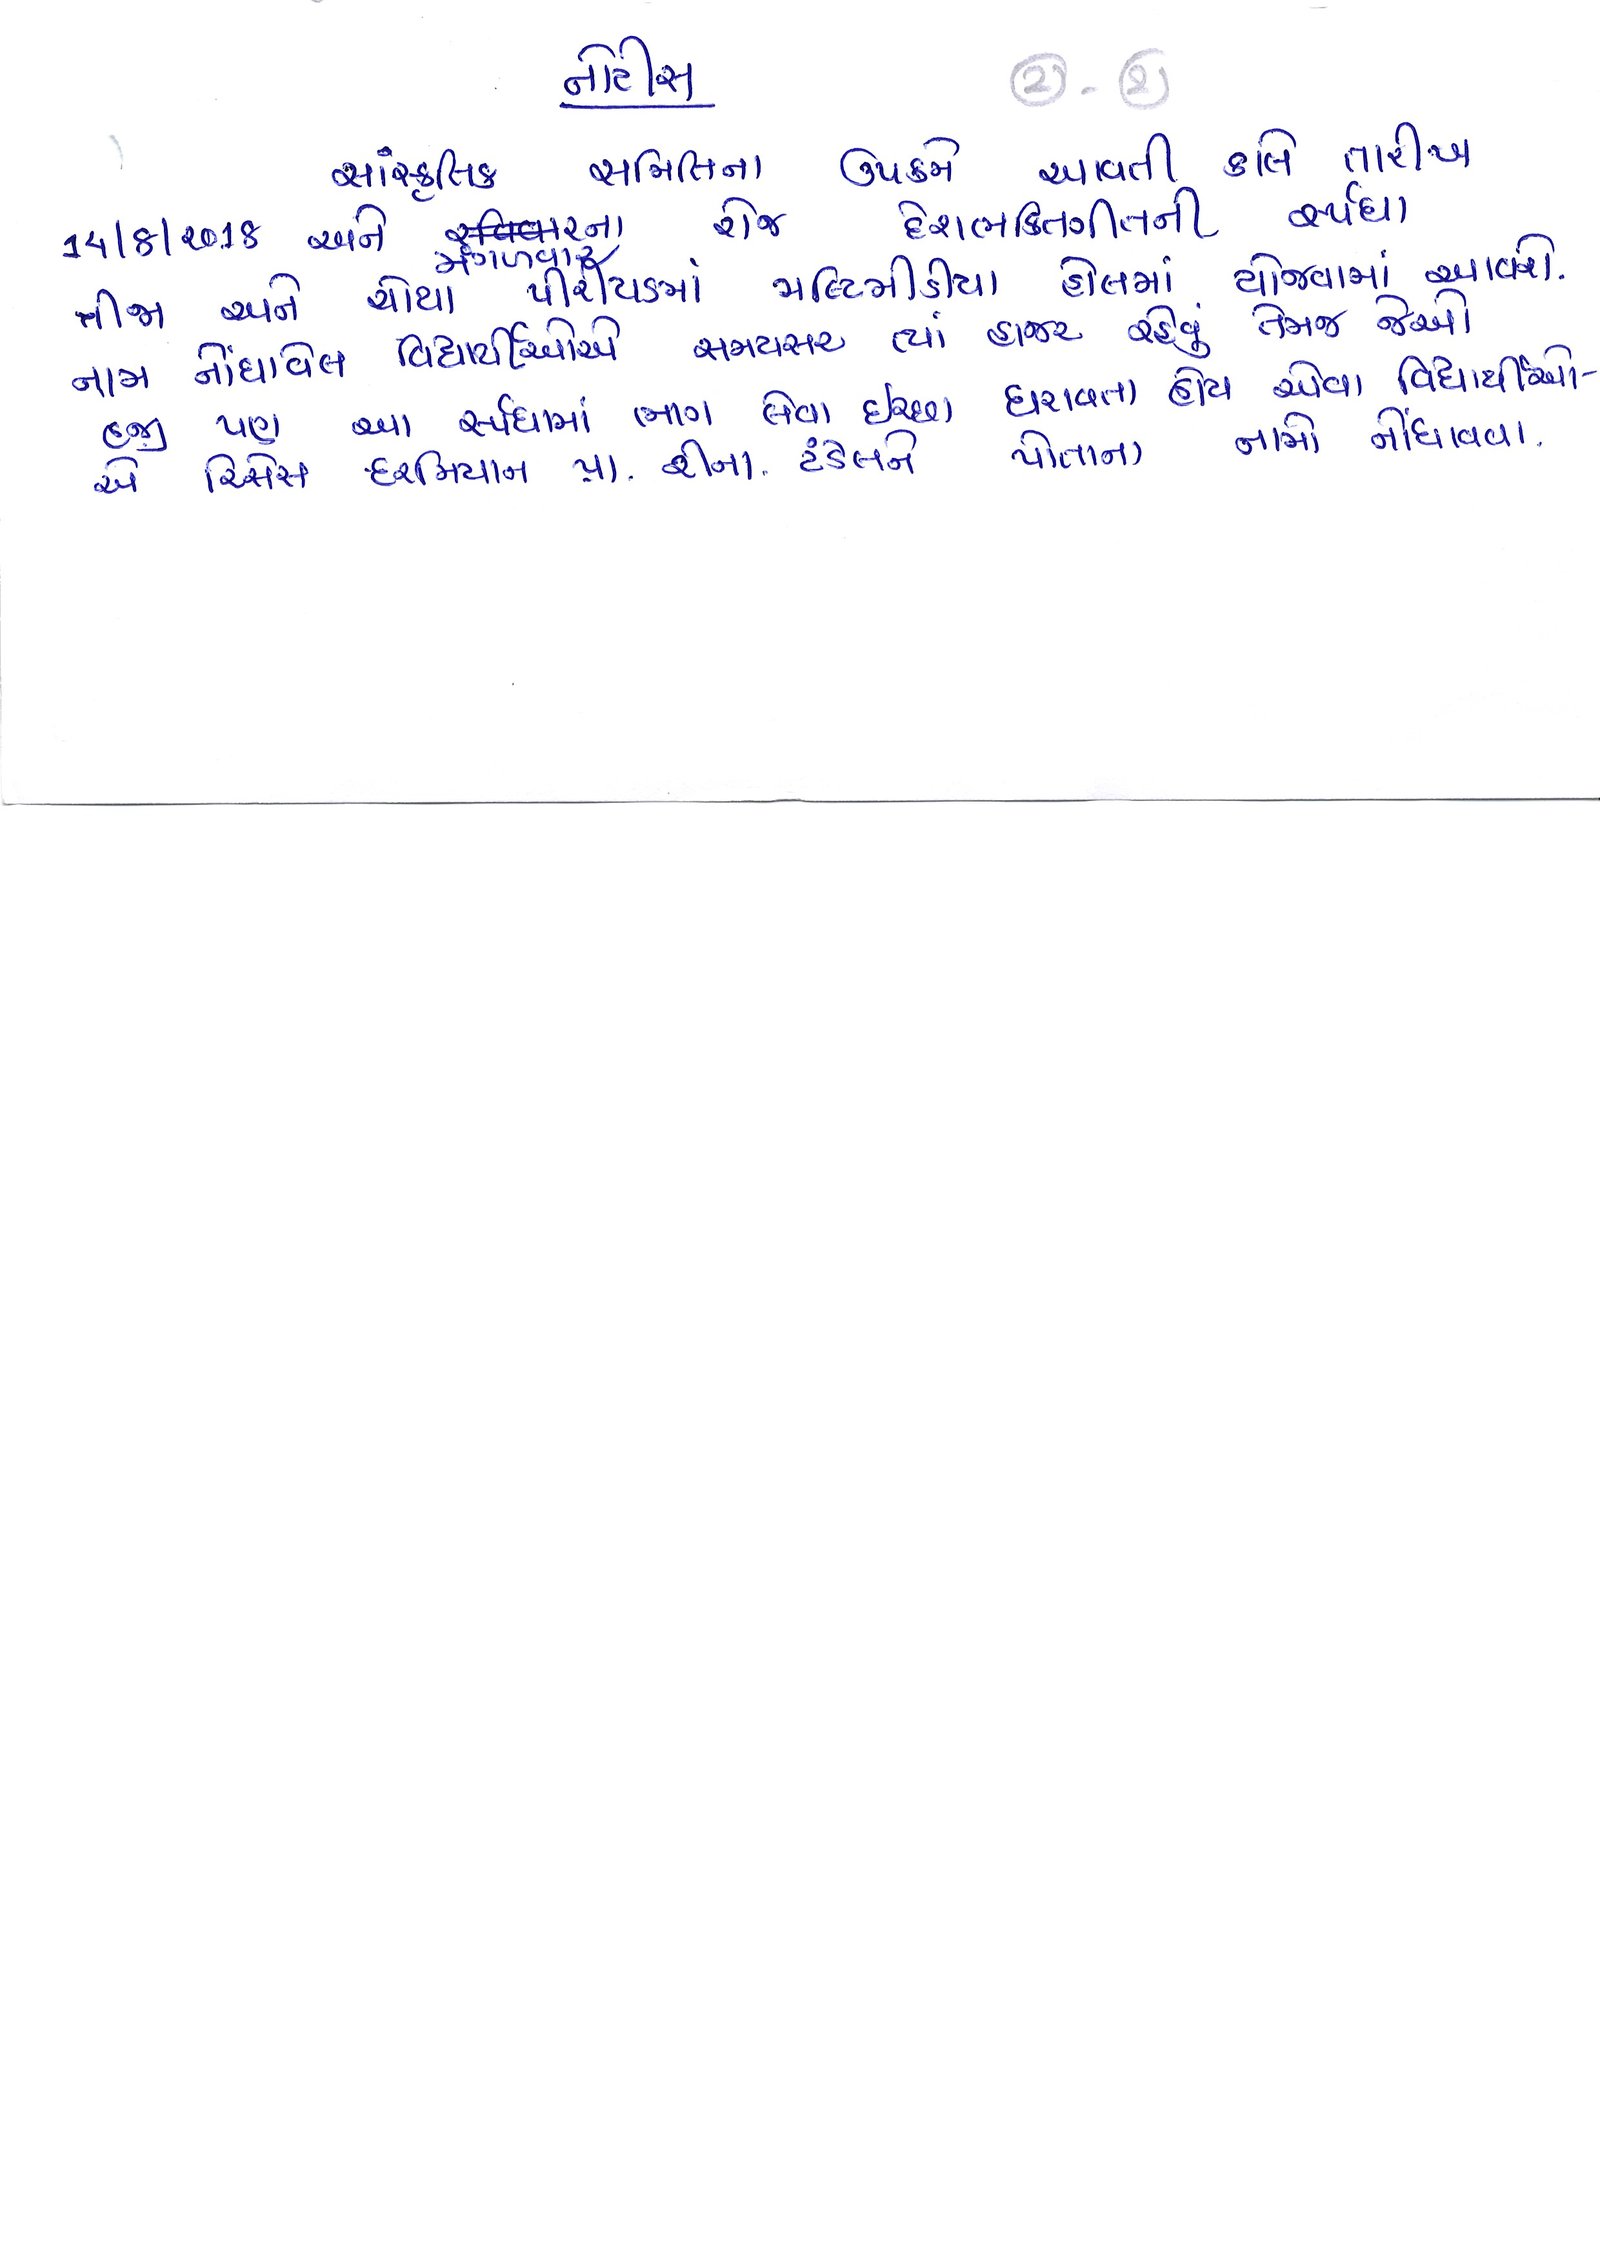 નોટીસ
②-②
સાંસ્કૃતિક સમિતિના ઉપક્રમે આવતી કાલે તારીખ
14/8/2018 અને રવિવારના રોજ દેશભક્તિગીતની સ્પર્ધા
મંગળવાર
ત્રીજા અને ચોથા પીરીયડમાં મલ્ટિમીડીયા હોલમાં યોજવામાં આવશે.
નામ નોંધાવેલ વિદ્યાર્થીઓએ સમયસર ત્યાં હાજર રહેવું તેમજ જેઓ
હજુ પણ આ સ્પર્ધામાં ભાગ લેવા ઇચ્છા ધરાવતા હોય એવા વિદ્યાર્થીઓ-
એ રિસેસ દરમિયાન પ્રા. રીના. ટંડેલને પોતાના નામો નોંધાવવા.